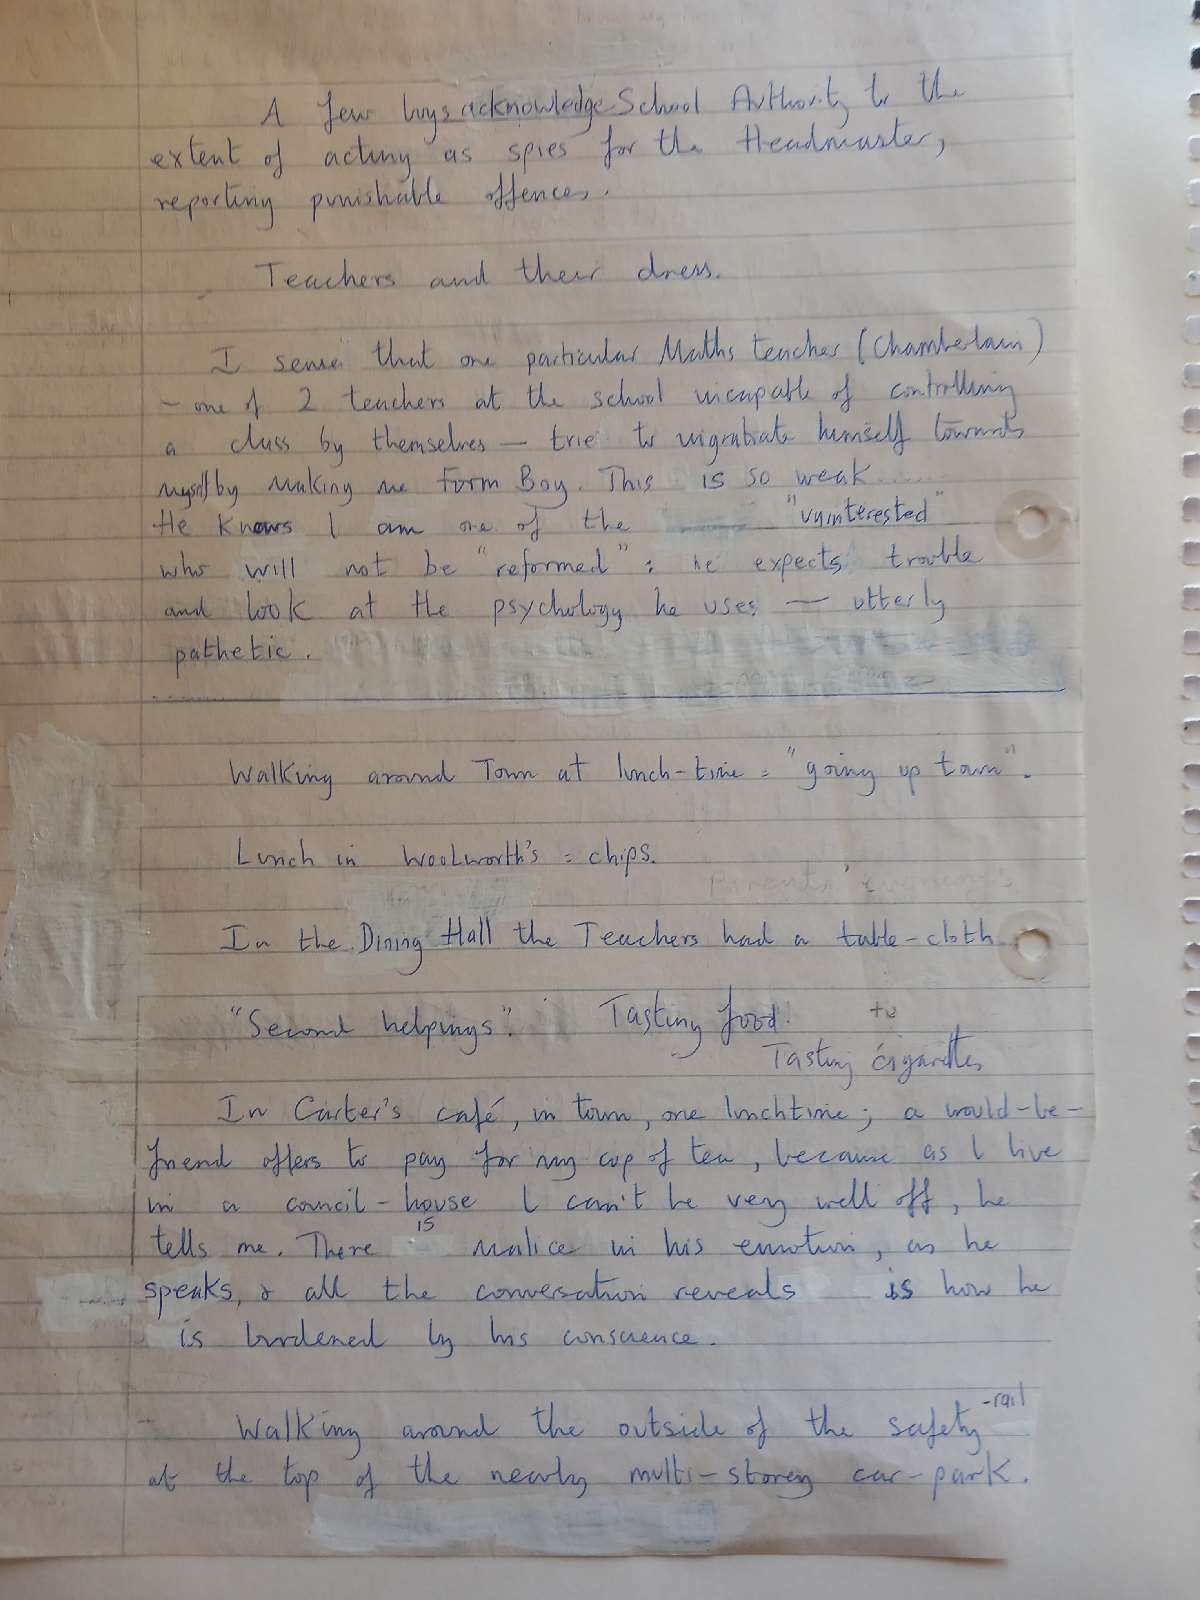 A few boys acknowledge School Authority to the
extent of acting as spies for the Headmaster,
reporting punishable offences.
Teachers and their dress.
I sense that one particular Maths teacher (Chamberlain)
- one of 2 teachers at the school incapable of controlling
a class by themselves - trie to ingratiate himself towards
myself by making me Form Boy. This is so weak......
He knows I am one of the "uninterested"
who will not be "reformed": he expects trouble
and look at the psychology he uses — utterly
pathetic.
Walking around Town at lunch-time = "going up town".
Lunch in Woolworth's = chips.
Parents' evenings
In the Dining Hall the Teachers had a table-cloth
"Second helpings". Tasting food. to
Tasting cigarettes
In Carter's café, in town, one lunchtime; a would-be-
friend offers to pay for my cup of tea, because as I live
in a council-house I can't be very well off, he
tells me. There is malice in his emotion, as he
speaks, & all the conversation reveals is how he
is burdened by his conscience.
Walking around the outside of the safety-rail
at the top of the nearby multi-storey car-park.